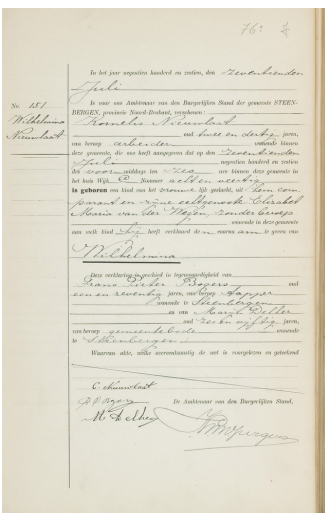 76
No. 151
Wilhelmina
Nieuwlaat
In het jaar negentien honderd en zestien, den zeventienden
Juli
is voor ons Ambtenaar van den Burgerlijken Stand der gemeente STEEN-
BERGEN, provincie Noord-Brabant, verschenen:
Kornelis Nieuwlaat
oud twee en dertig jaren,
van beroep arbeider wonende binnen
deze gemeente, die ons heeft aangegeven dat op den zeventienden
Juli negentien honderd en zestien
des voor middags ten zes ure binnen deze gemeente in
het huis Wijk Nommer acht en veertig
is geboren een kind van het vrouwelijk geslacht, uit hem com
parant en zijne echtgenoote Elizabet
Maria van der Weijen, zonder beroep
wonende in deze gemeente
aan welk kind hij heeft verklaard den naam te geven van
Wilhelmina
Deze verklaring is geschied in tegenwoordigheid van
Frans Pieter Bogers oud
een en zeventig jaren, van beroep tapper
wonende te Steenbergen
en van Marijn Delhez
oud zes en vijftig jaren,
van beroep gemeentebode wonende
te Steenbergen
Waarvan akte, welke overeenkomstig de wet is voorgelezen en geteekend
C Nieuwlaat
De Ambtenaar van den Burgerlijken Stand,
M Delhez